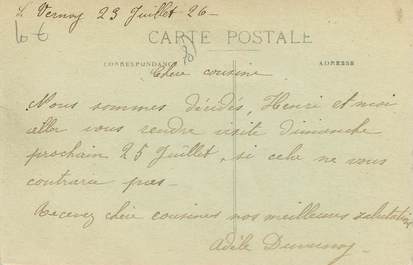 Vernoy 23 Juillet 26-
6 €
CARTE POSTALE
CORRESPONDANCE
ADRESSE
Chère cousine
Nous sommes décidés, Henri et moi
aller vous rendre visite dimanche
prochain 25 Juillet, si cela ne vous
contrarie pas-
Recevez chère cousines nos meilleures salutations
Adèle